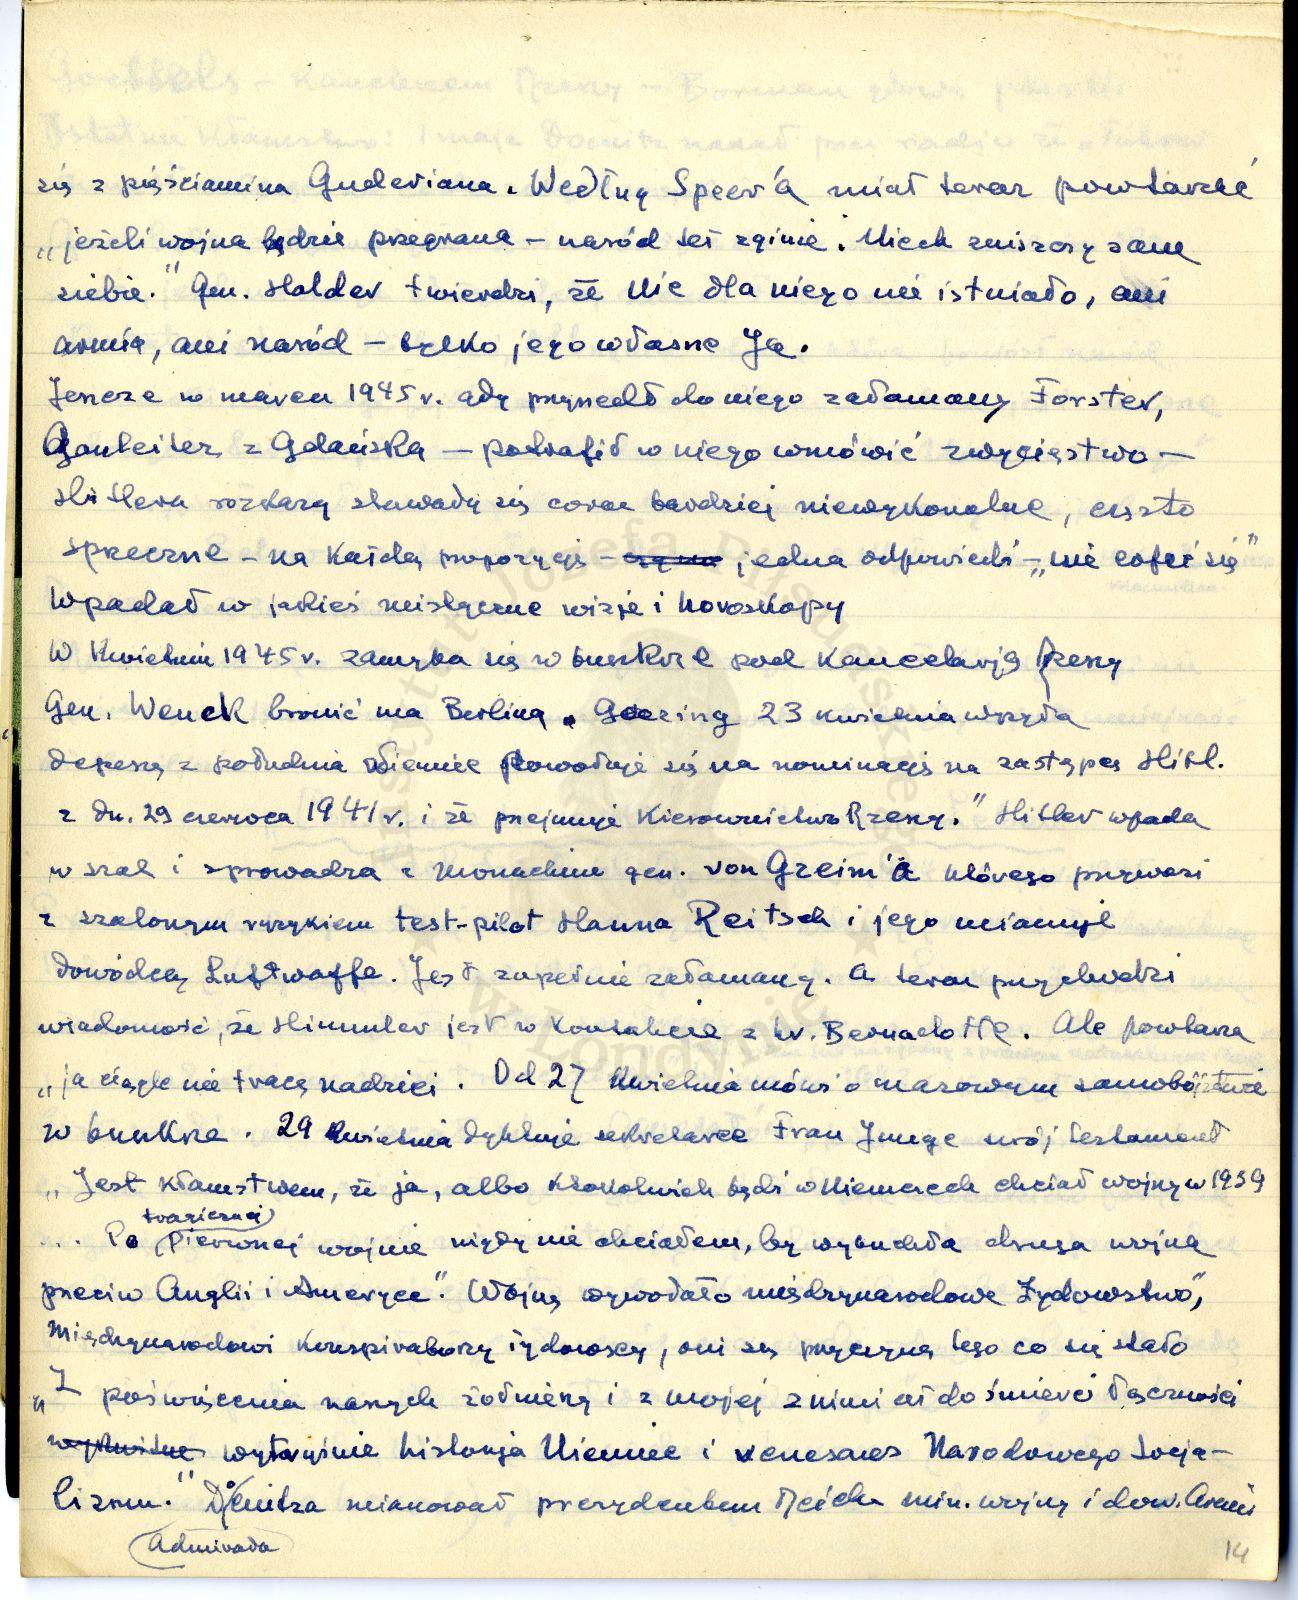 się z pięściami na Guderiana. Według Speer'a miał teraz powtarzać
„jeżeli wojna będzie przegrana – naród też zginie. Niech zniszczy same
siebie." Gen. Halder twierdzi, że nic dla niego nie istniało, ani
armia, ani naród – tylko jego własne Ja.
Jeszcze w marcu 1945 r. gdy przyszedł do niego załamany Forster,
Gauleiter z Gdańska – potrafił w niego wmówić zwycięstwo –
Hitlera rozkazy stawały się coraz bardziej niewykonalne, często
sprzeczne – na każdą propozycję – jedna odpowiedź – „nie cofać się"
Wpadał w jakieś mistyczne wizje i horoskopy
W kwietniu 1945 r. zamyka się w bunkrze pod Kancelarją Rzeszy
Gen. Wenck bronić ma Berlina. Goering 23 kwietnia wysyła
depeszę z południa Niemiec powołuje się na nominację na zastępcę Hitl.
z dn. 29 czerwca 1941 r. i że przejmuje Kierownictwo Rzeszy." Hitler wpada
w szał i sprowadza z Monachium gen. von Greim'a którego przywozi
z szalonym ryzykiem test-pilot Hanna Reitsch i jego mianuje
dowódcą Luftwaffe. Jest zupełnie załamany. A teraz przychodzi
wiadomość, że Himmler jest w kontakcie z hr. Bernadotte. Ale powtarza
„ja ciągle nie tracę nadziei. Od 27 kwietnia mówi o masowym samobójstwie
w bunkrze. 29 kwietnia dyktuje sekretarce Frau Junge swój testament
„Jest kłamstwem, że ja, albo ktokolwiek bądź w Niemczech chciał wojny w 1939
... Po pierwszej wojnie nigdy nie chciałem, by wybuchła druga wojna
przeciw Anglii i Ameryce." Wojnę wywołało międzynarodowe Żydowstwo",
Międzynarodowi konspiratorzy żydowscy, oni są przyczyną tego co się stało
„Z poświęcenia naszych żołnierzy i z mojej z nimi aż do śmierci łączności
wytryśnie historja Niemiec i renesans Narodowego Socja-
lizmu." Dönitza mianował prezydentem Reichu min. wojny i dow. Armii
Admirała
14